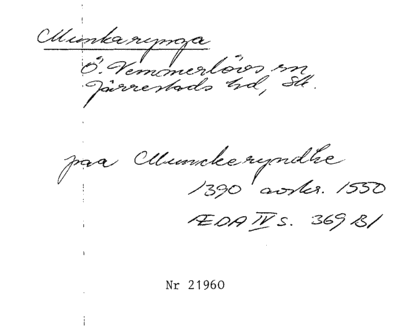 Munkarynga
Ö. Vemmerlövs sn
Järrestads hd, Sk.
paa Munckeryndhe
1390 avskr. 1550
ÆDA IV s. 369 B1
Nr 21960